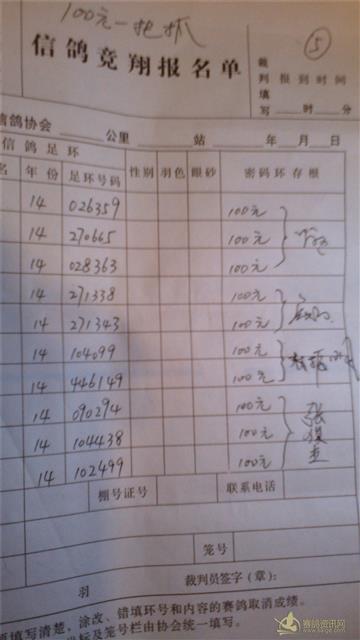 100元一把抓
⑤
信鸽竞翔报名单
裁判填写 报到时间
时 分
信鸽协会 公里 站 年 月 日
信鸽足环
名 年份 足环号码 性别 羽色 眼砂 密码环存根
14 026359 100元
14 270665 100元
14 028363 100元
14 271338 100元
14 271343 100元
14 104099 100元
14 446149 100元
14 090294 100元
14 104438 100元
14 102499 100元
棚号证号 联系电话
笼号
羽 裁判员签字(章):
要填写清楚,涂改、错填环号和内容的赛鸽取消成绩。
标及笼号栏由协会统一填写。
赛鸽资讯网
www.saige.com